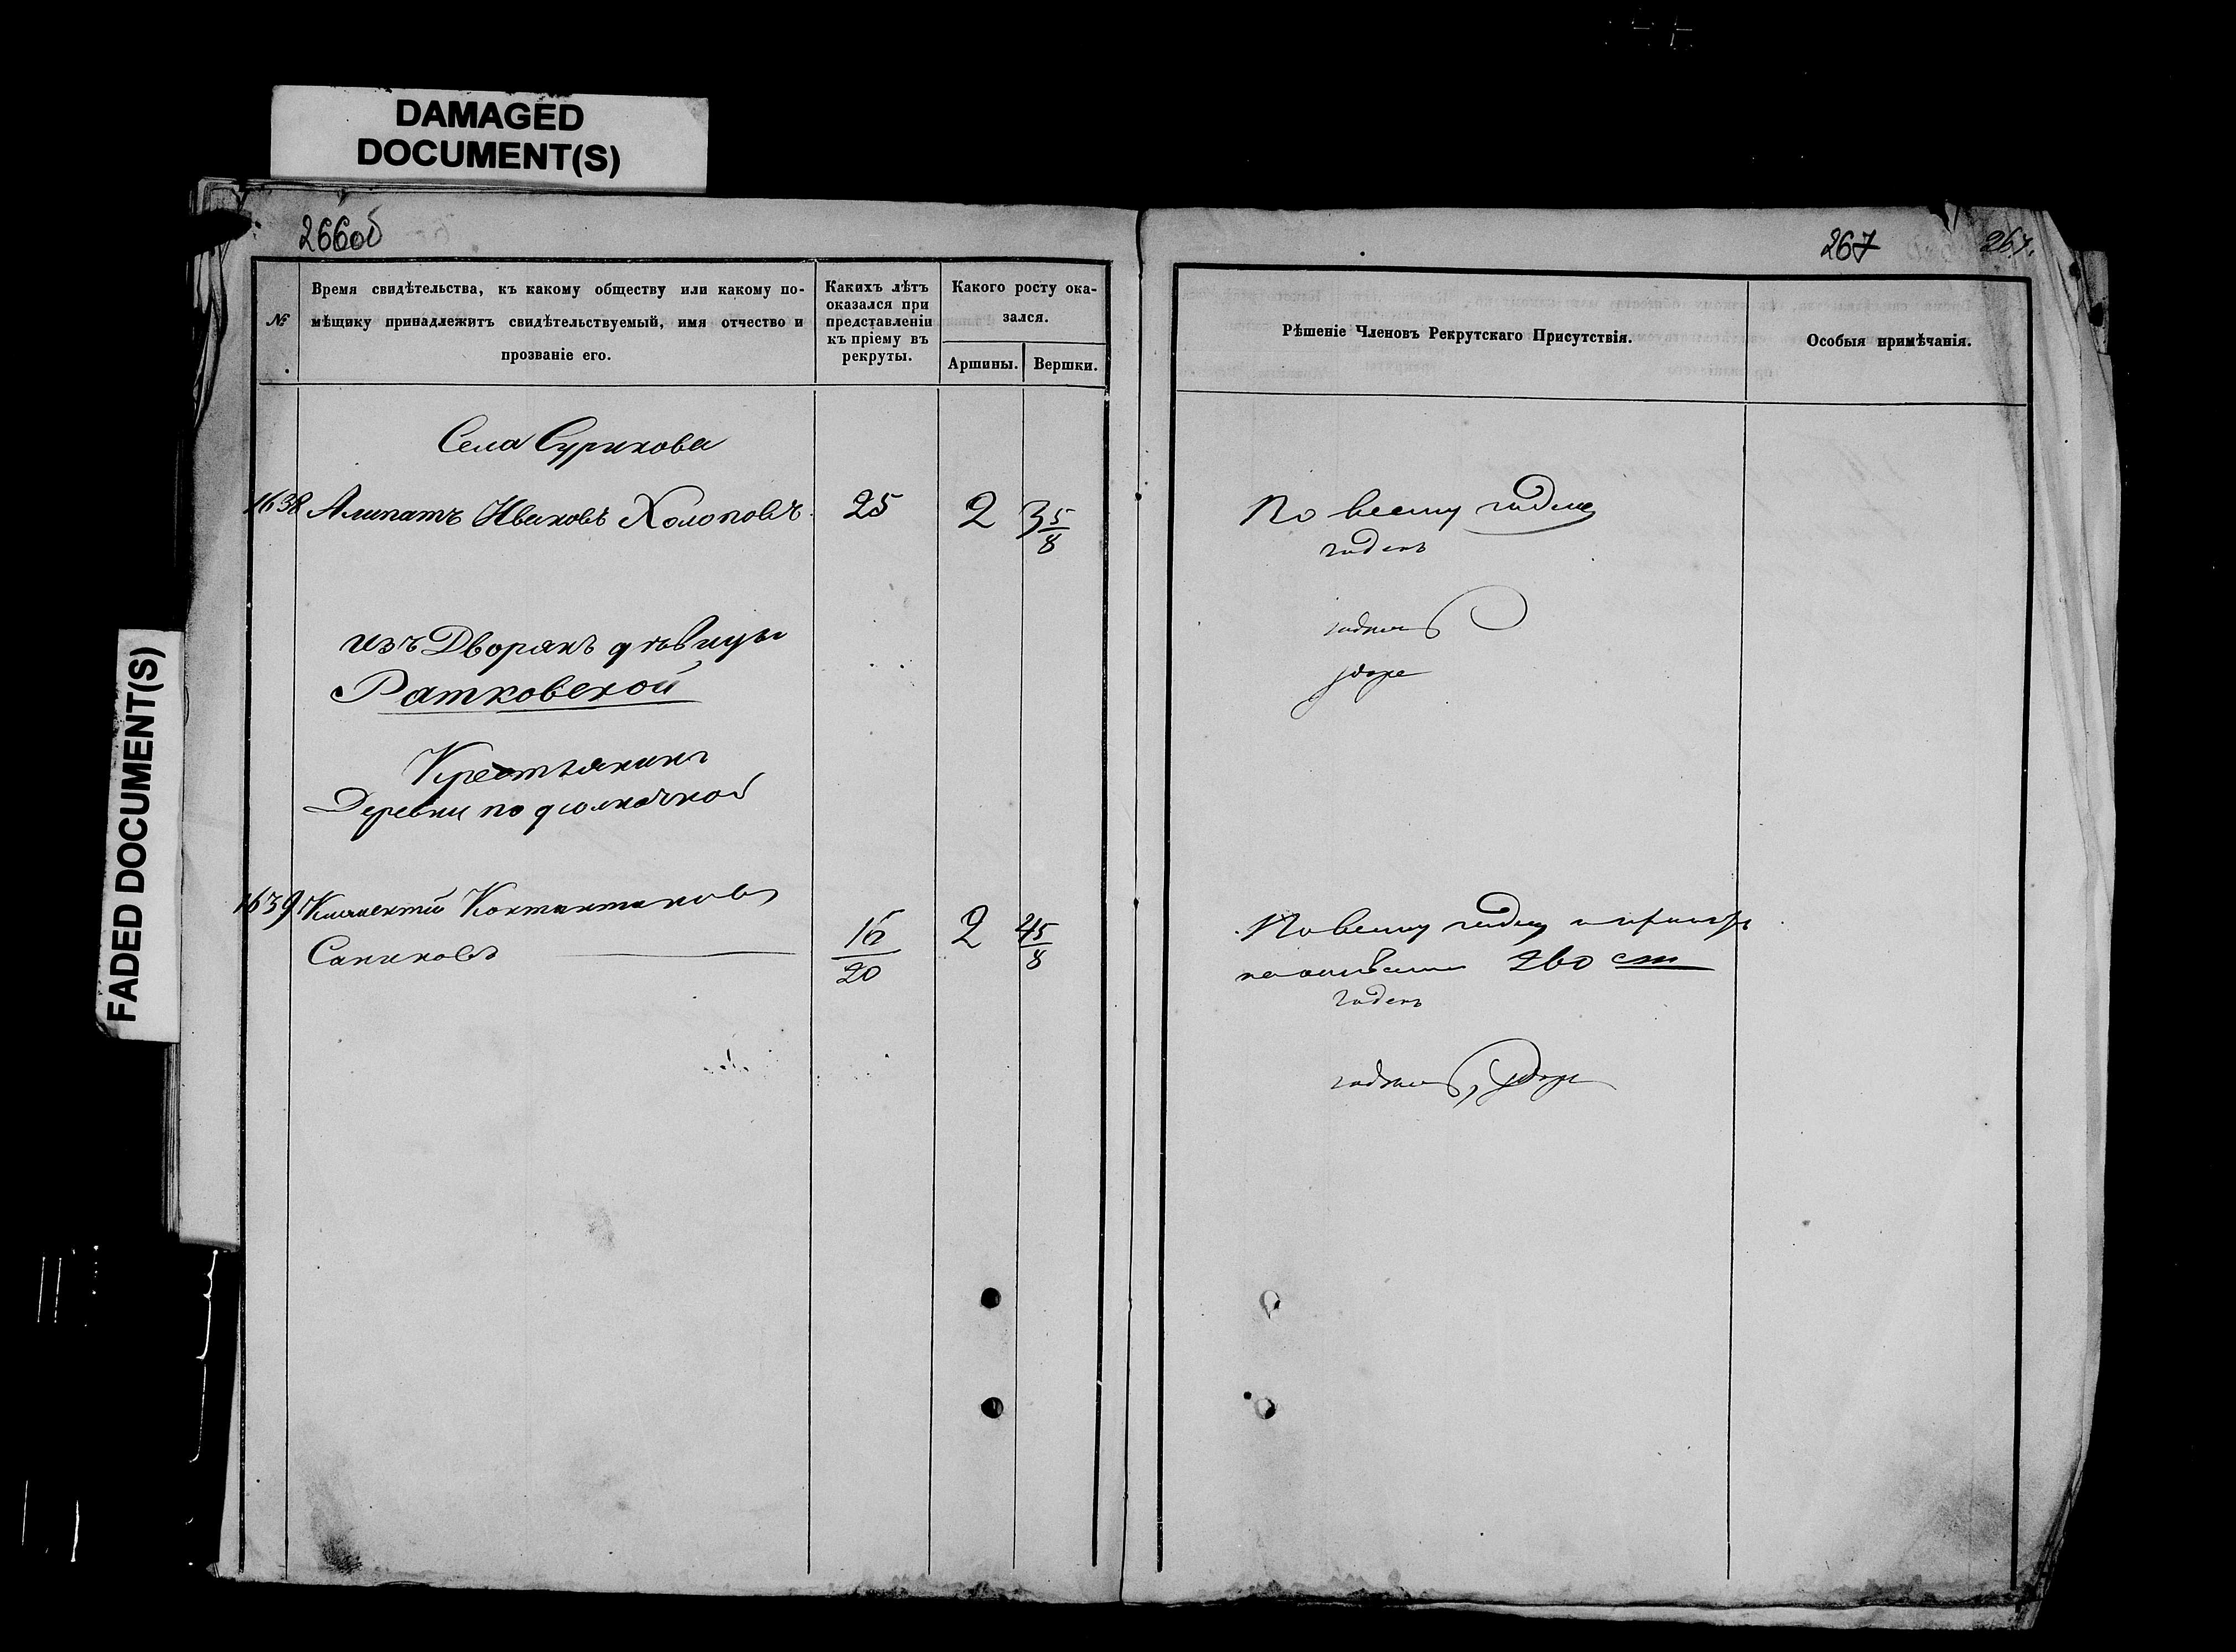 DAMAGED
DOCUMENT(S)
FADED DOCUMENT(S)
266об
№
Время свидѣтельства, къ какому обществу или какому по-
мѣщику принадлежитъ свидѣтельствуемый, имя отчество и
прозваніе его.
Какихъ лѣтъ
оказался при
представленіи
къ пріему въ
рекруты.
Какого росту ока-
зался.
Аршины. Вершки.
Села Сурикова
1638 Алипатъ Ивановъ Холоповъ 25 2 3 5/8
изъ Дворянъ дѣвицы
Ратковской
Крестьянинъ
Деревни
1639 Климентій
Саниковъ 2 4 5/8
20
267 267.
Рѣшеніе Членовъ Рекрутскаго Присутствія.
Особыя примѣчанія.
По всему годенъ
годенъ
годенъ
По всему годенъ
2го
годенъ
годенъ